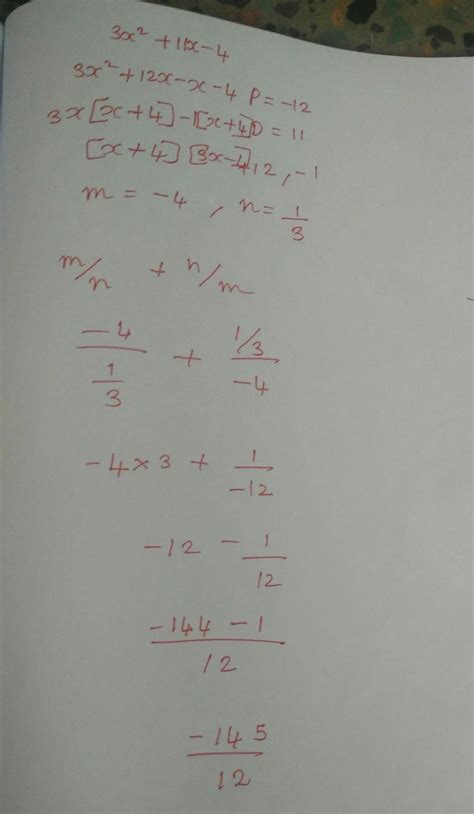 3x² + 11x - 4
3x² + 12x - x - 4 P = -12
3x[x + 4] - 1[x + 4] D = 11
[x + 4] [3x - 1] +12, -1
m = -4 , n = 1/3
m/n + n/m
-4/(1/3) + (1/3)/-4
-4 × 3 + 1/-12
-12 - 1/12
(-144 - 1)/12
-145/12